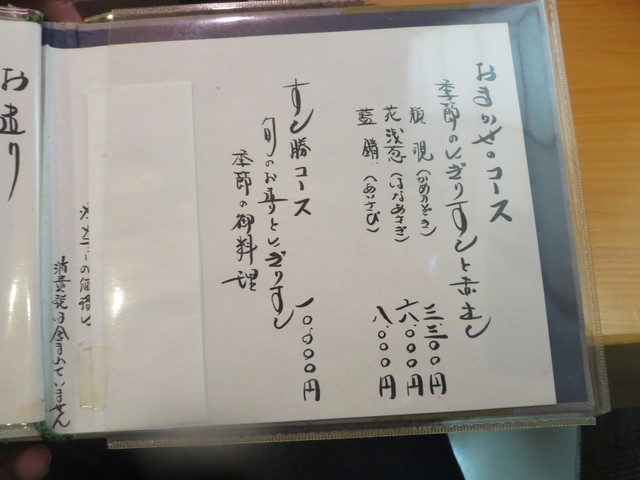 おまかせのコース
季節のにぎりすしと赤出し
瓶覗（かめのぞき） 三、三〇〇円
花浅葱（はなあさぎ） 六、〇〇〇円
藍錆（あいさび） 八、〇〇〇円
すし勝コース 一〇、〇〇〇円
旬のお造りとにぎりすし
季節の御料理
※メニューの価格に
消費税は含まれていません
お造り